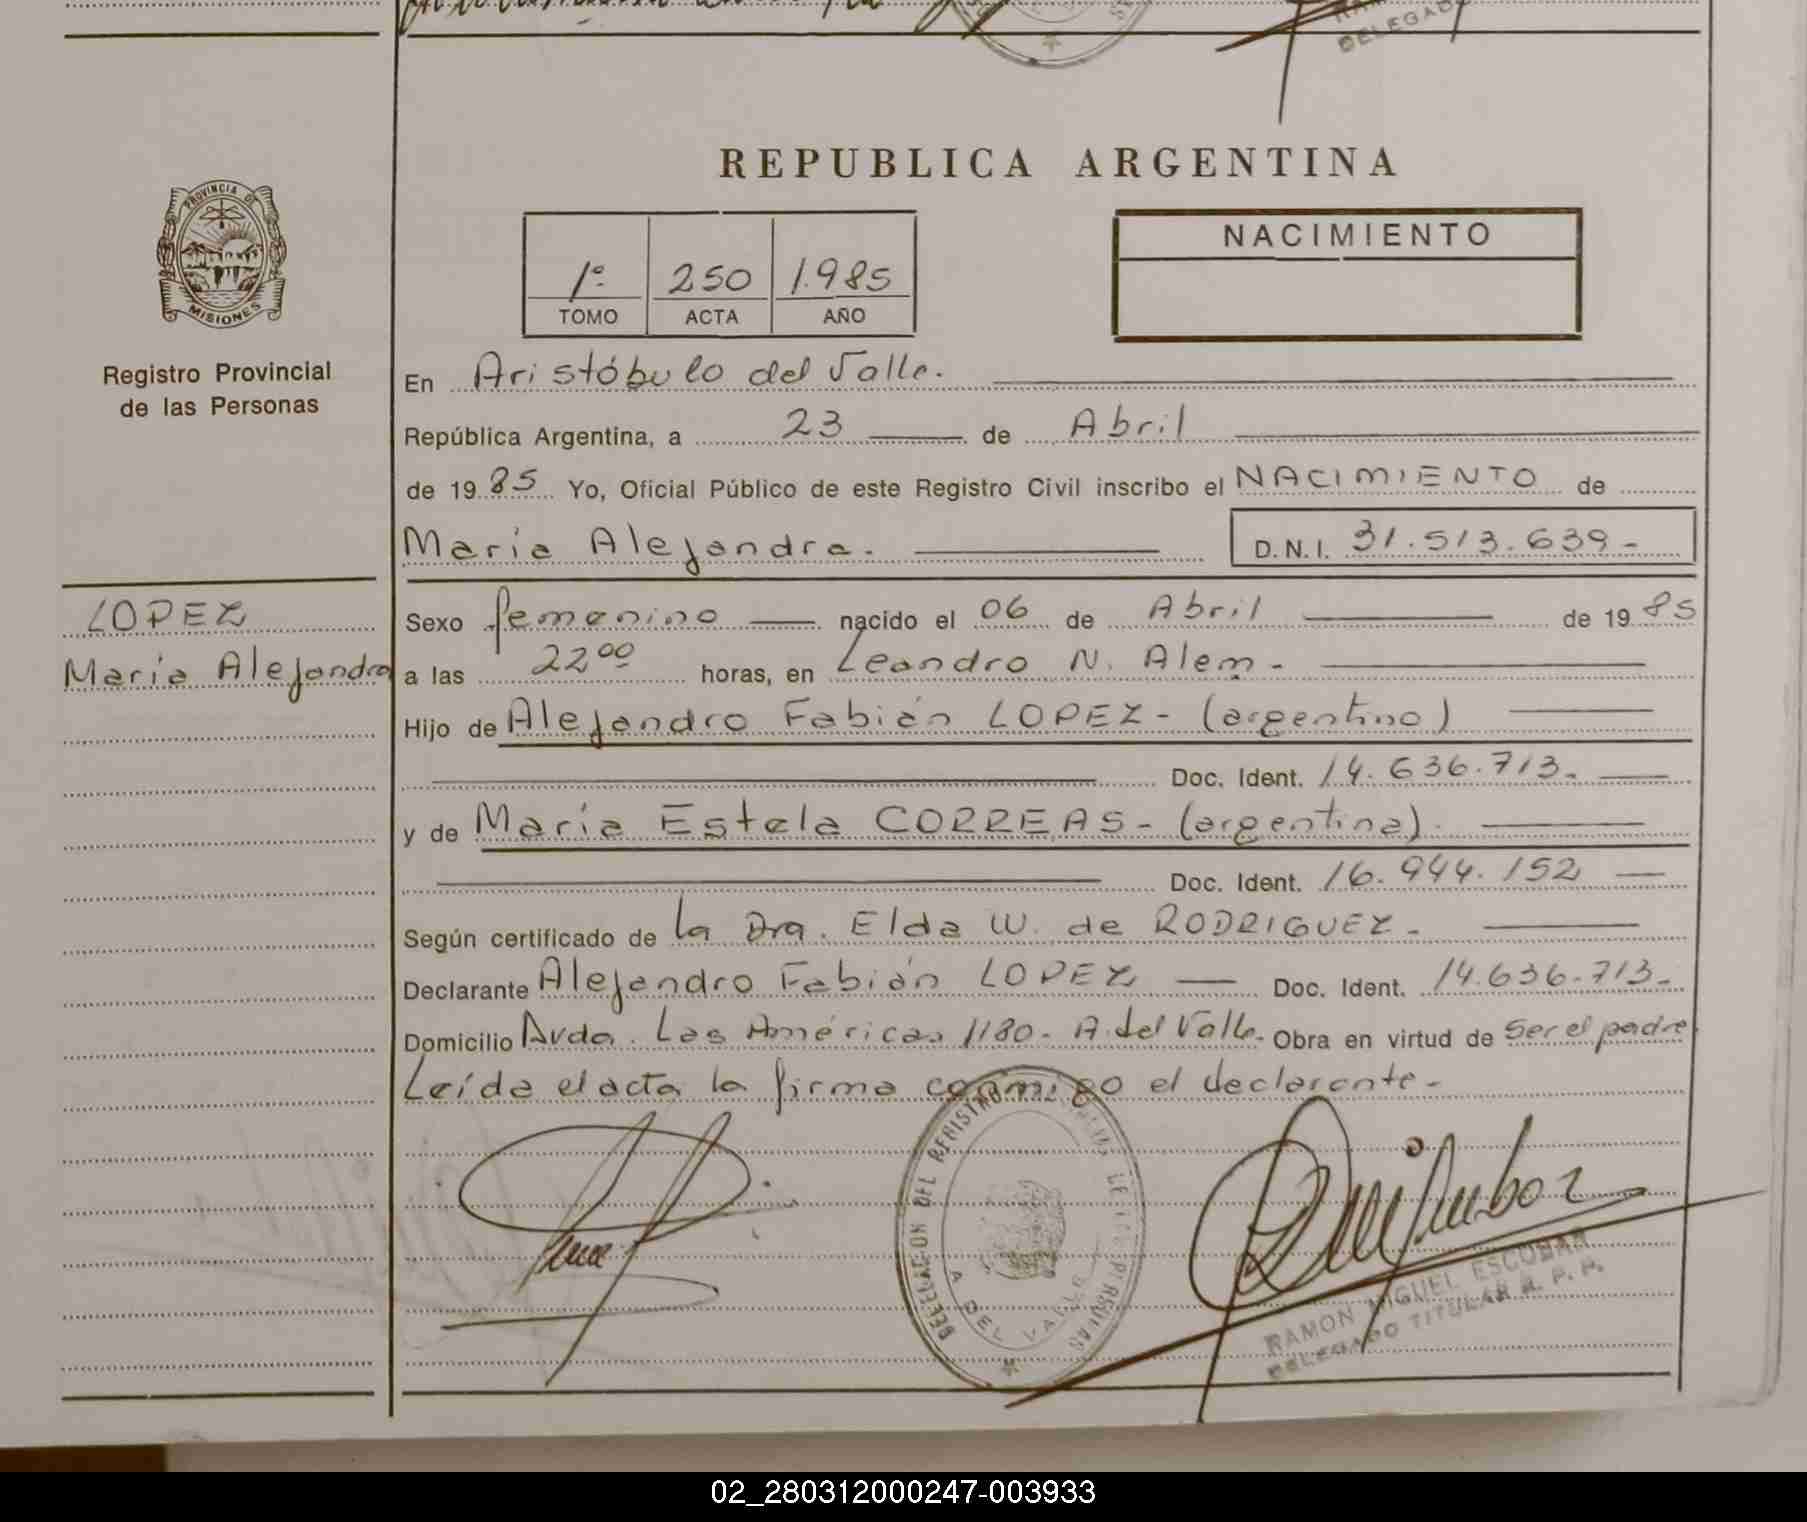 DELEGADO
REPUBLICA ARGENTINA
PROVINCIA DE
MISIONES
Registro Provincial
de las Personas
1º 250 1.985
TOMO ACTA AÑO
NACIMIENTO
En Aristóbulo del Valle.
República Argentina, a 23 de Abril
de 1985 Yo, Oficial Público de este Registro Civil inscribo el NACIMIENTO de
María Alejandra. D.N.I. 31.513.639-
LOPEZ
María Alejandra
Sexo femenino nacido el 06 de Abril de 1985
a las 22⁰⁰ horas, en Leandro N. Alem-
Hijo de Alejandro Fabián LOPEZ- (argentino)
Doc. Ident. 14.636.713.
y de María Estela CORREAS- (argentina).
Doc. Ident. 16.944.152
Según certificado de la Dra. Elda W. de RODRIGUEZ.
Declarante Alejandro Fabián LOPEZ Doc. Ident. 14.636.713.
Domicilio Avda. Las Américas 1180- A. del Valle- Obra en virtud de Ser el padre.
Leída el acta la firma conmigo el declarante-
DELEGACION DEL REGISTRO PROVINCIAL DE LAS PERSONAS
A DEL VALLE
RAMON MIGUEL ESCOBAR
DELEGADO TITULAR R. P. P.
02_280312000247-003933